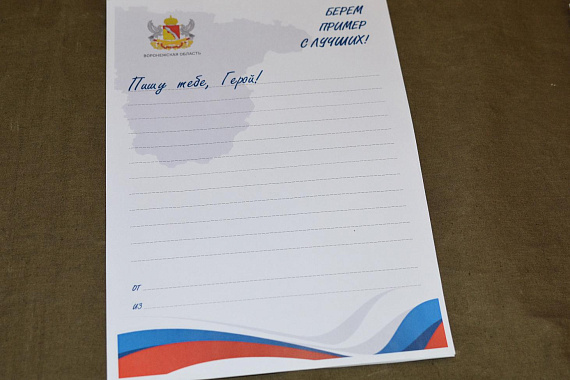 БЕРЕМ
ПРИМЕР
С ЛУЧШИХ!
ВОРОНЕЖСКАЯ ОБЛАСТЬ
Пишу тебе, Герой!
ОТ
ИЗ